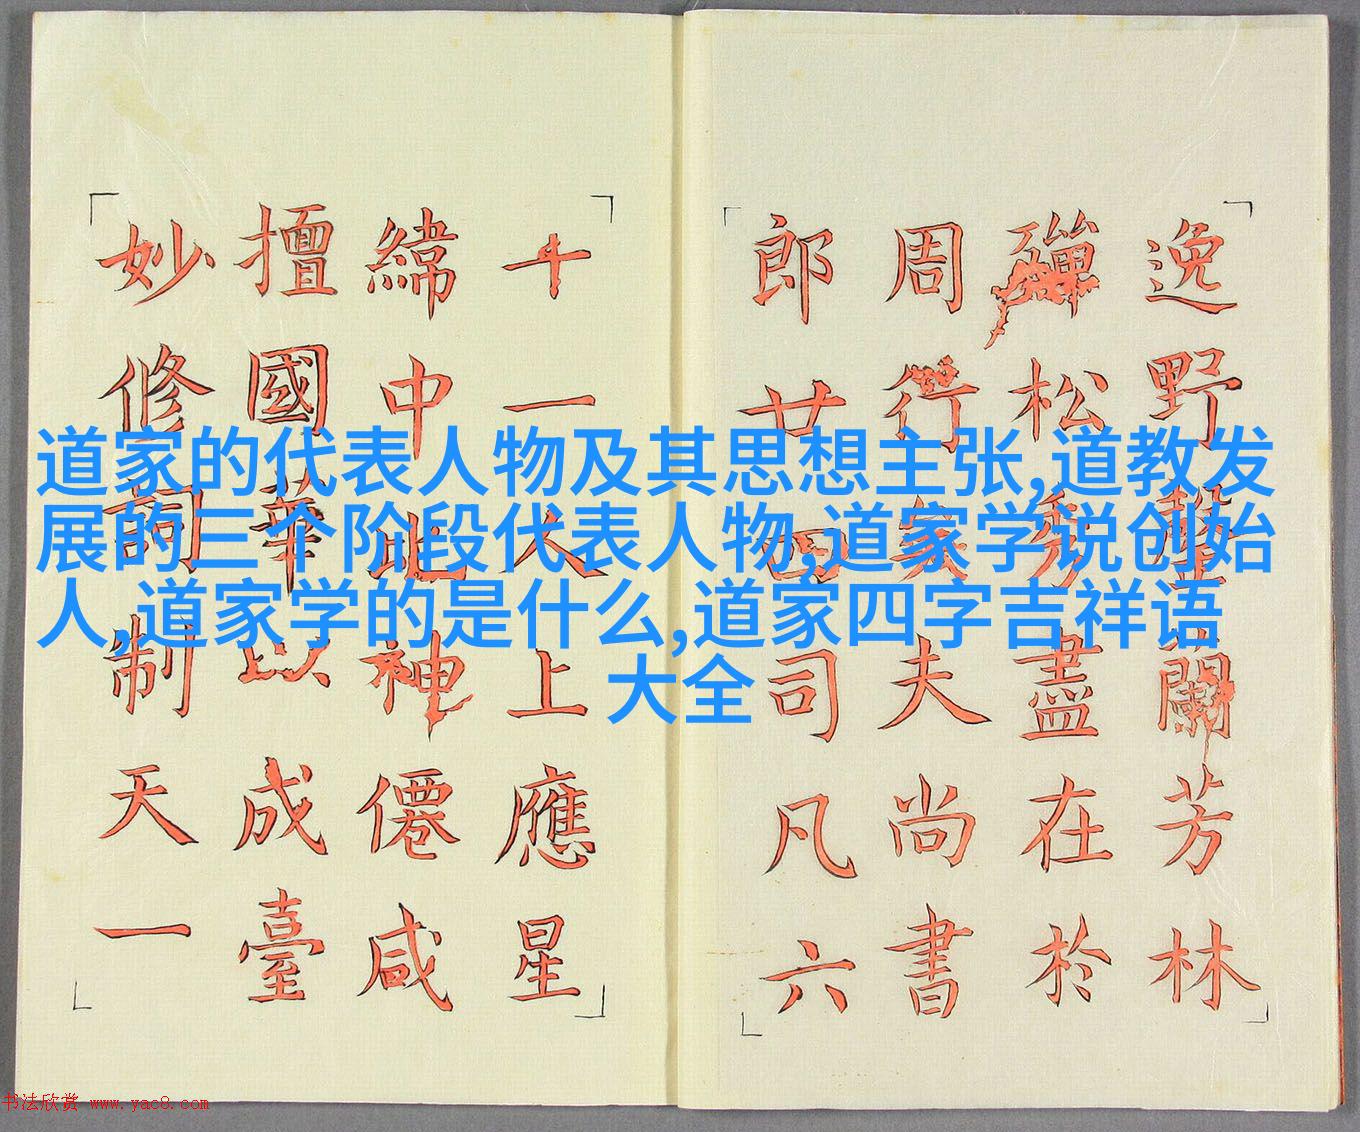 道家的代表人物及其思想主张,道教发
展的三个阶段代表人物,道家学说创始
人,道家学的是什么,道家四字吉祥语
大全
逸野蘭芳林
殫松盡在於
周行矣夫尚書
郎廿四司凡六
十一人上應星
緯中比神僊咸
擅國華以成臺
妙修詞制天一
书法欣赏 www.yac8.com